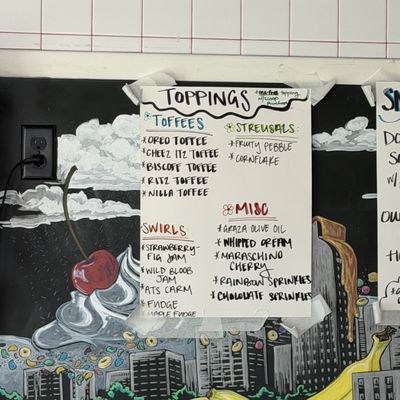 TOPPINGS
topping
w/scoop
TOFFEES
*OREO TOFFEE
*CHEEZ ITZ TOFFEE
*BISCOFF TOFFEE
*RITZ TOFFEE
*NILLA TOFFEE
SWIRLS
*STRAWBERRY-
FIG JAM
*WILD BLOOB
JAM
*ATS CARM
*FUDGE
*MAPLE FUDGE
STREUSALS
*FRUITY PEBBLE
*CORNFLAKE
MISC
*GRAZA OLIVE OIL
*WHIPPED CREAM
*MARASCHINO
CHERRY
*RAINBOW SPRINKLES
*CHOCOLATE SPRINKLES